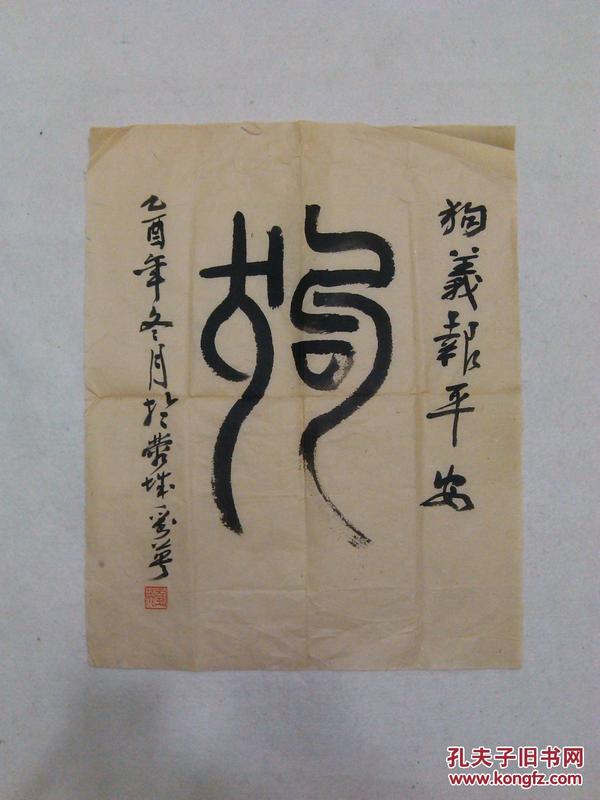 狗義報平安
狗
乙酉年冬月於蒙城
孔夫子旧书网
www.kongfz.com